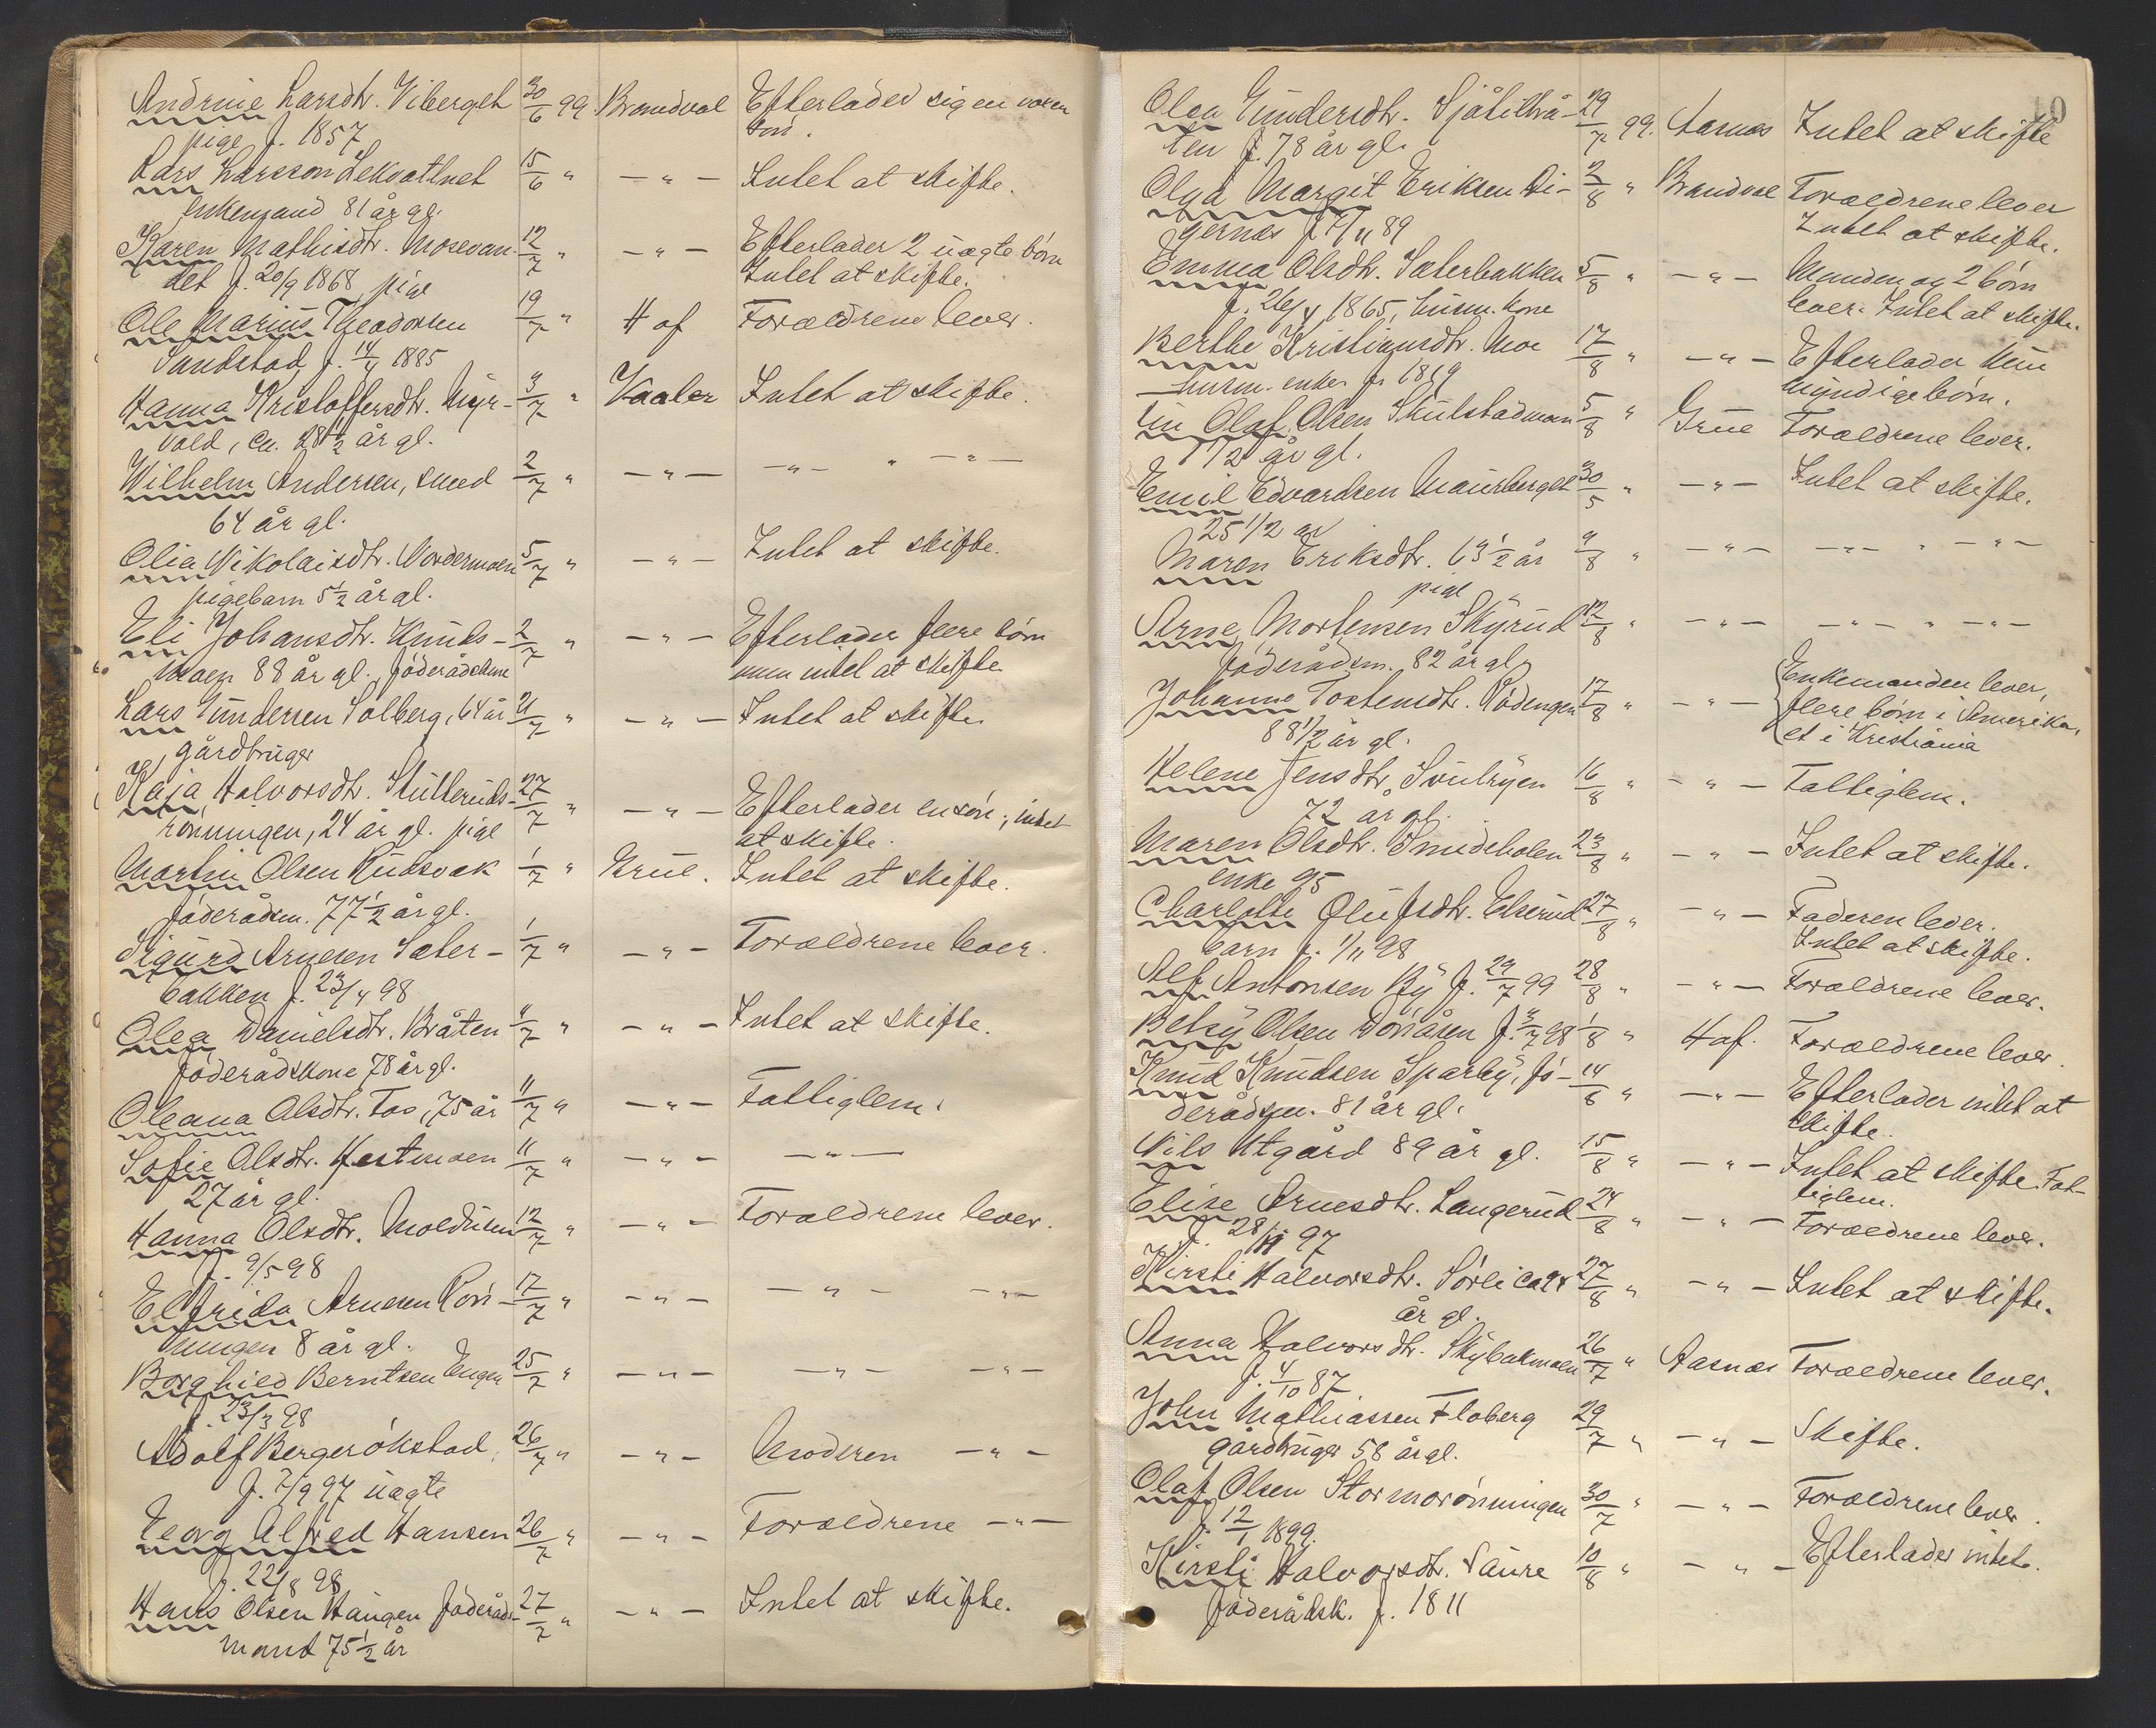 Andrine Larsdtr. Viberget 30/6 99. Brandval Efterlader sig en voxen
pige f. 1857 søn.
Lars Larsson Lekvattnet 15/6 " — " — Intet at skifte.
enkemand 81 år gl.
Karen Mathisdtr. Mosevan- 12/7 " — " — Efterlader 2 uægte børn
det f. 20/9 1868, pige Intet at skifte.
Ole Marius Theodorsen 19/7 " Hof Forældrene lever.
Sandstad f. 14/4 1885
Hanna Kristoffersdtr. Myr- 3/7 " Vaaler Intet at skifte.
vold, ca. 28 1/2 år gl.
Wilhelm Andersen, smed 2/7 " — " — — " — " — " —
64 år gl.
Olia Nikolaisdtr. Nordermoen 5/7 " — " — Intet at skifte.
pigebarn 5 1/2 år gl.
Eli Johansdtr. Knuds- 2/7 " — " — Efterlader flere børn
moen 88 år gl., föderådskone men intet at skifte
Lars Gundersen Solberg, 64 år 21/7 " — " — Intet at skifte.
gårdbruger
Kaja Halvorsdtr. Skulleruds- 27/7 " — " — Efterlader en søn; intet
rönningen, 24 år gl. pige at skifte.
Martin Olsen Rudsvak 1/7 " Grue. Intet at skifte.
föderådsm. 77 1/2 år gl.
Sigurd Arnesen Sæter- 1/7 " — " — Forældrene lever.
bakken f. 23/4 98
Olea Danielsdtr. Bråten 4/7 " — " — Intet at skifte.
föderådskone 78 år gl.
Oleana Olsdtr. Tas, 75 år 11/7 " — " — Fattiglem.
Sofie Olsdtr. Hestmoen 11/7 " — " — — " —
27 år gl.
Hanna Olsdtr. Moldusen 12/7 " — " — Forældrene lever.
f. 9/5 98
Elfrida Arnesen Rön- 17/7 " — " — — " — — " —
ningen 8 år gl.
Borghild Berntsen Engen 25/7 " — " — — " — — " —
f. 23/3 98
Adolf Bergerökstad, 26/7 " — " — Moderen — " —
f. 7/9 97 uægte
Georg Alfred Hansen 26/7 " — " — Forældrene — " —
f. 22/8 98
Hans Olsen Haugen föderåds- 27/7 " — " — Intet at skifte.
mand 75 1/2 år
10
Olea Gundersdtr. Sjåtillrå- 29/7 99. Aasnæs Intet at skifte
ten f. 78 år gl.
Olga Margit Eriksen Di- 2/8 " Brandval Forældrene lever
gernæs f. 7/11 89 Intet at skifte.
Emma Olsdtr. Sæterbakken 5/8 " — " — Manden og 2 börn
f. 26/4 1865, husm. kone lever. Intet at skifte.
Berthe Kristiansdtr. Moe 17/8 " — " — Efterlader kun
husm. enke f. 1819 myndige børn.
Olaf Olsen Skulstadmoen 5/8 " Grue Forældrene lever.
1/2 år gl.
Emil Edvardsen Mausberget 30/5 " — " — Intet at skifte.
25 1/2 år
Maren Eriksdtr. 69 1/2 år 9/8 " — " — — " — " — " —
pige
Arne Mortensen Skyrud 12/8 " — " — — " — " — " —
föderådsm. 82 år gl.
Johanne Tostensdtr. Rödengen 17/8 " — " — Enkemanden lever,
88 1/2 år gl. flere børn i Amerika,
et i Kristiania
Helene Jensdtr. Svulryen 16/8 " — " — Fattiglem.
72 år gl.
Maren Olsdtr. Smedsholen 23/8 " — " — Intet at skifte.
enke 95
Charlotte Olufsdtr. Elserud 27/8 " — " — Faderen lever.
barn f. 1/11 98 Intet at skifte.
Alf Antonsen Ry f. 29/7 99 28/8 " — " — Forældrene lever.
Betzy Olsen Dönåsen f. 3/7 98 1/8 " Hof. Forældrene lever.
Knud Knudsen Sparby, fö- 14/8 " — " — Efterlader intet at
derådsm. 81 år gl. skifte.
Nils Utgård 89 år gl. 15/8 " — " — Intet at skifte. Fat-
tiglem.
Elise Arnesdtr. Langerud 24/8 " — " — Forældrene lever.
f. 28/11 97
Kirsti Halvorsdtr. Sörli ca 94 27/8 " — " — Intet at skifte.
år gl.
Anna Halvorsdtr. Skybakmoen 26/7 " Aasnæs Forældrene lever.
f. 4/10 87
John Mathiassen Floberg 29/7 " — " — Skifte.
gårdbruger 58 år gl.
Olaf Olsen Stormorönningen 30/7 " — " — Forældrene lever.
f. 12/1 1899.
Kirsti Halvorsdtr. Saure 10/8 " — " — Efterlader intet.
föderådsk. f. 1811